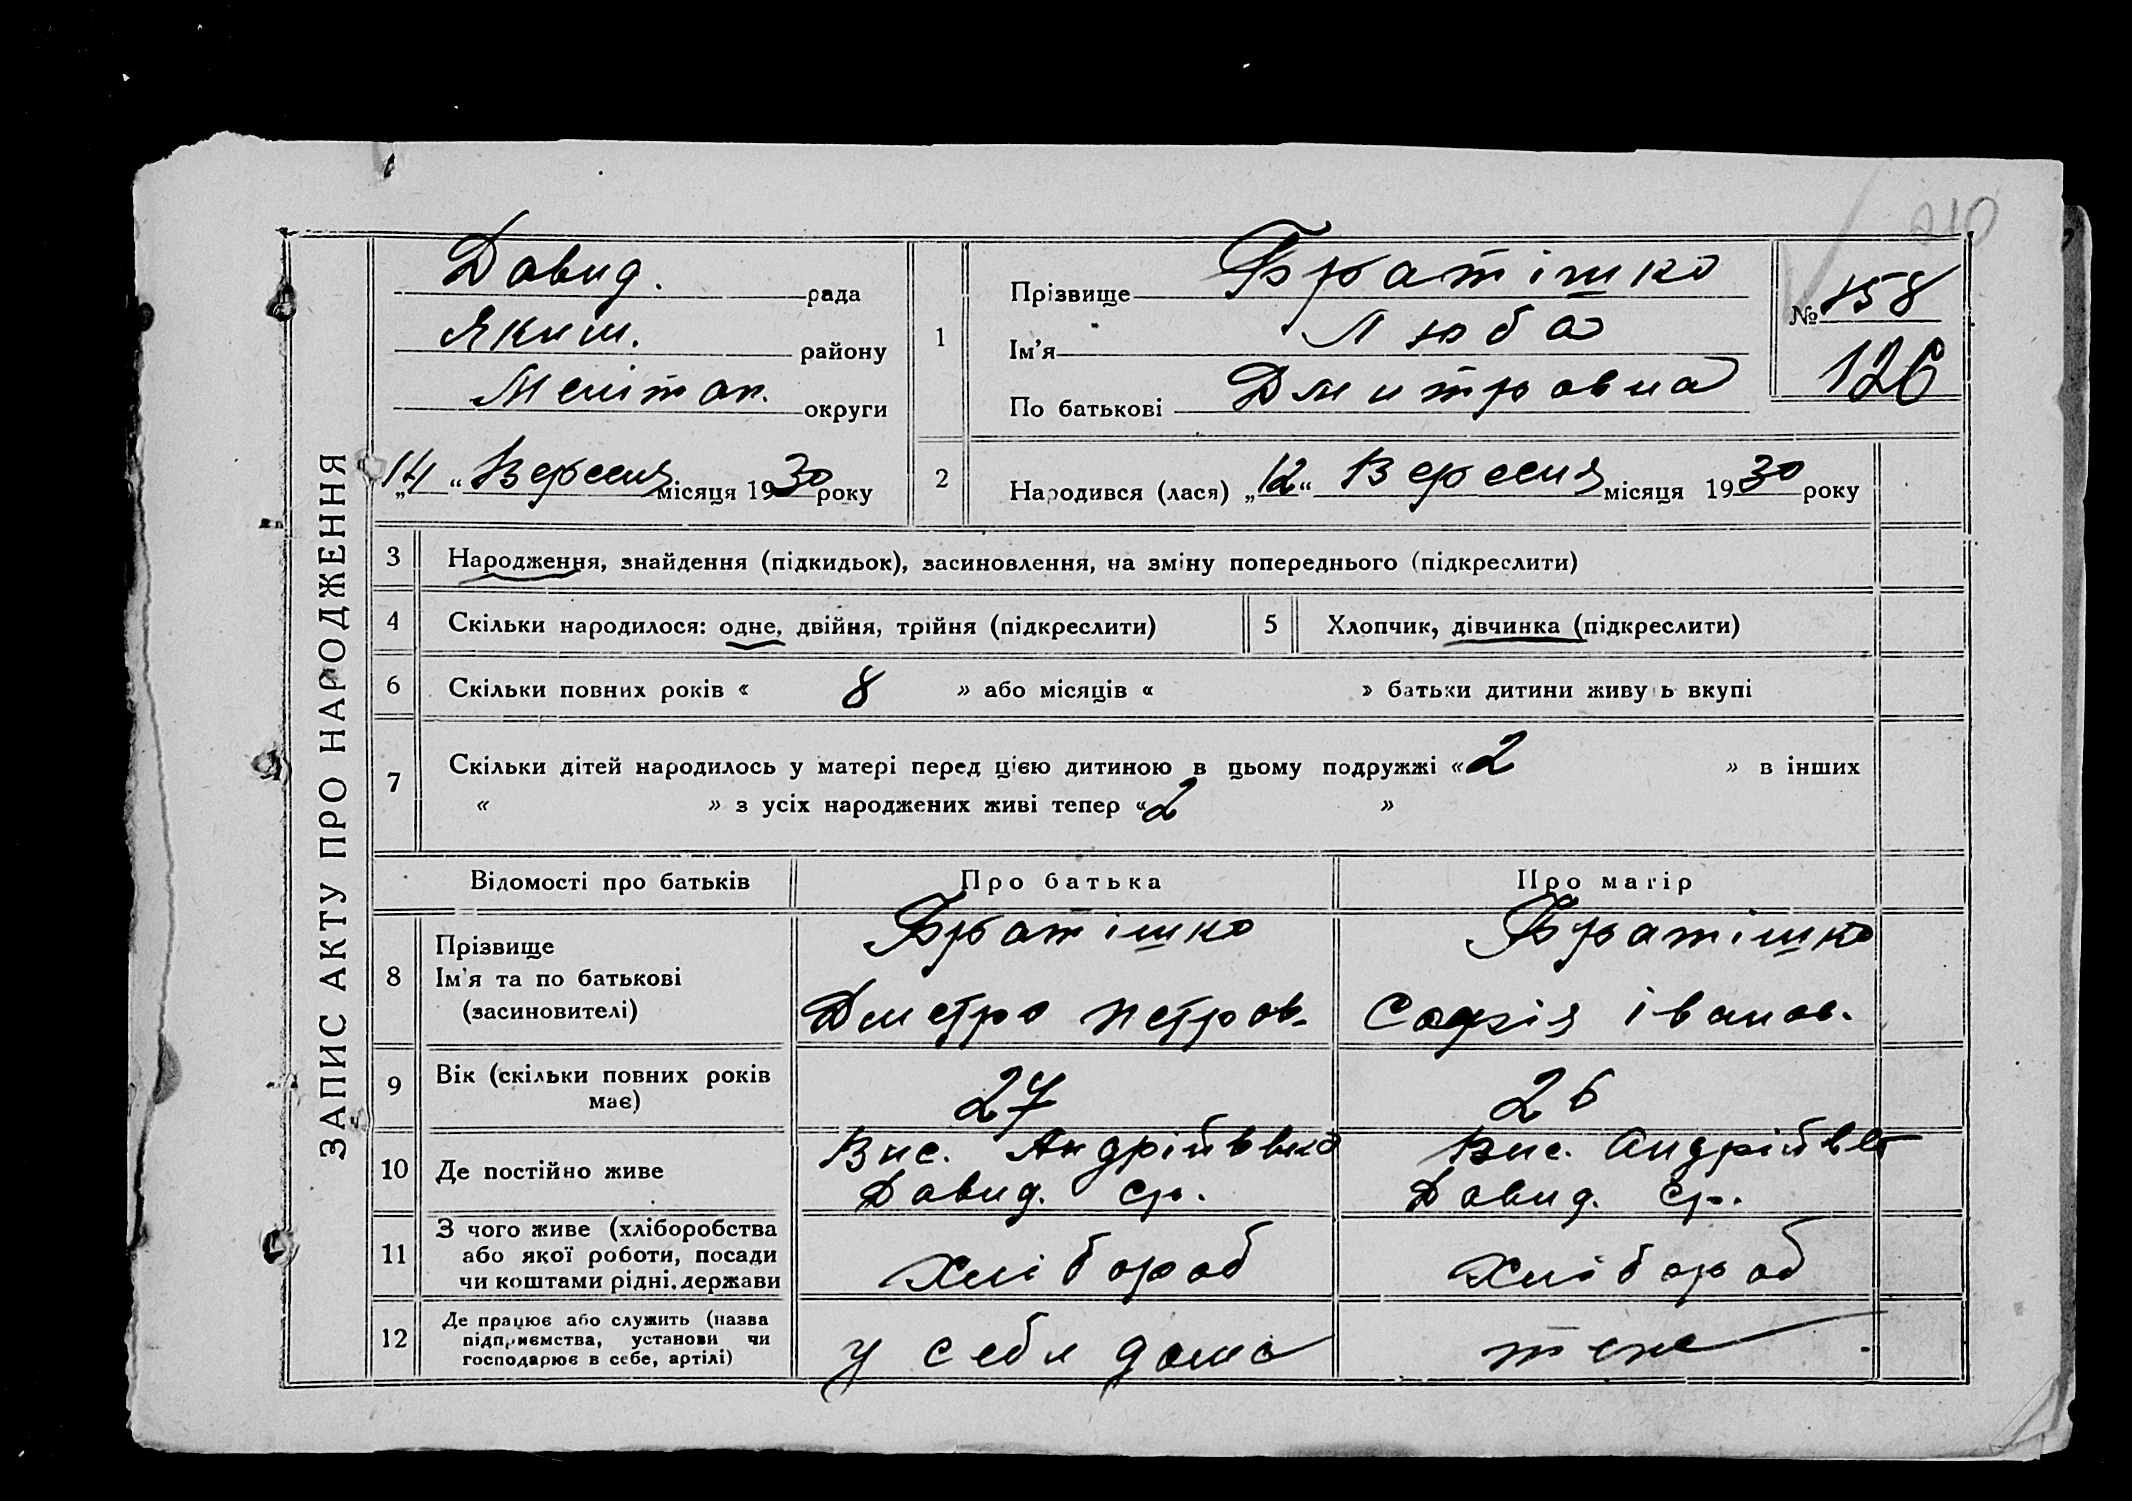 210
Давид. рада
Яким. району
Мелітоп. округи
„14“ Вересня місяця 1930 року
ЗАПИС АКТУ ПРО НАРОДЖЕННЯ
1
Прізвище Братішко
Ім'я Люба
По батькові Дмитровна
№ 158
126
2 Народився (лася) „12“ Вересня місяця 1930 року
3 Народження, знайдення (підкидьок), засиновлення, на зміну попереднього (підкреслити)
4 Скільки народилося: одне, двійня, трійня (підкреслити) 5 Хлопчик, дівчинка (підкреслити)
6 Скільки повних років « 8 » або місяців « » батьки дитини живуть вкупі
7 Скільки дітей народилось у матері перед цією дитиною в цьому подружжі « 2 » в інших
« » з усіх народжених живі тепер « 2 »
Відомості про батьків Про батька Про матір
8
Прізвище
Ім'я та по батькові
(засиновителі)
Братішко
Дметро петров.
Братішко
Софія іванов.
9
Вік (скільки повних років
має)
27
26
10 Де постійно живе
Вис. Андрійвка
Давид. ср.
Вис. Андрійвк
Давид. ср.
11
З чого живе (хліборобства
або якої роботи, посади
чи коштами рідні, держави
хлібороб
хлібороб
12
Де працює або служить (назва
підприємства, установи чи
господарює в себе, артілі)
у себя дома
теж